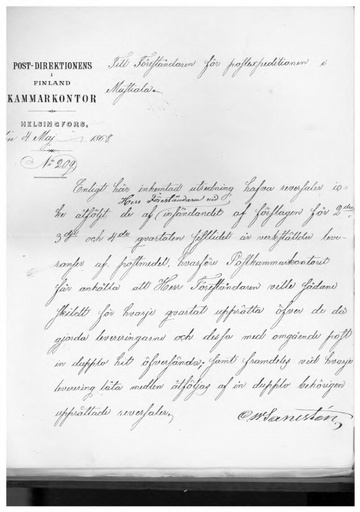 POST-DIREKTIONENS
I
FINLAND
KAMMARKONTOR
HELSINGFORS,
4 Maj 1868
No 209
Till Föreståndaren för postexpeditionen i
Mustiala.
Enligt här inhemtad utredning hafva reverseler ic-
Herr Föreståndaren vid
ke åtföljt de af insändandet af förslagen för 2dra
3dje och 4de qvartalen verkställda leve-
ranser af postmedel, hvarför Postkammarkontoret
får anhålla att Herr Föreståndaren ville sådane
för hvarje qvartal upprätta öfver de
gjorda leveringarne och dessa med omgående post
in dupplo hit öfversända; samt framdeles vid hvarje
levering låta medlen åtföljas af in dupplo behörigen
upprättade reverseler.